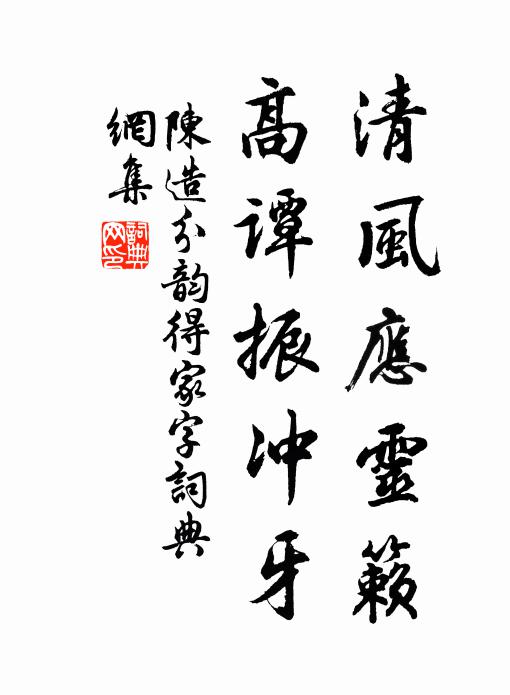 清風應靈籟
高譚振冲牙
陳造分韵得家字詞典
網集
詞典
网印